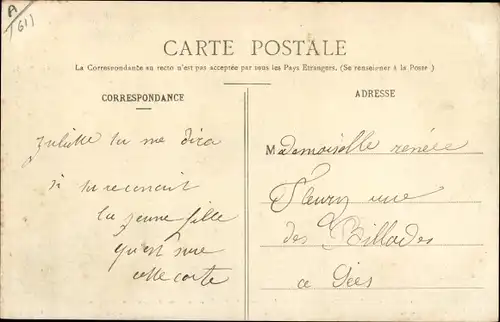 A
611
CARTE POSTALE
La Correspondance au recto n'est pas acceptée par tous les Pays Etrangers. (Se renseigner à la Poste)
CORRESPONDANCE
ADRESSE
juliette tu me dira
si tu reconait
la jeune fille
qu'est sure
cette carte
Mademoiselle renée
Fleury rue
des Billades
a